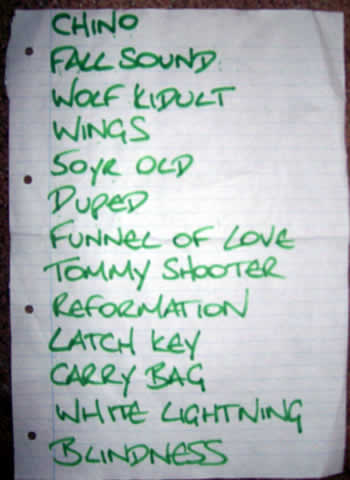 CHINO
FALL SOUND
WOLF KIDULT
WINGS
50YR OLD
DUPED
FUNNEL OF LOVE
TOMMY SHOOTER
REFORMATION
LATCH KEY
CARRY BAG
WHITE LIGHTNING
BLINDNESS